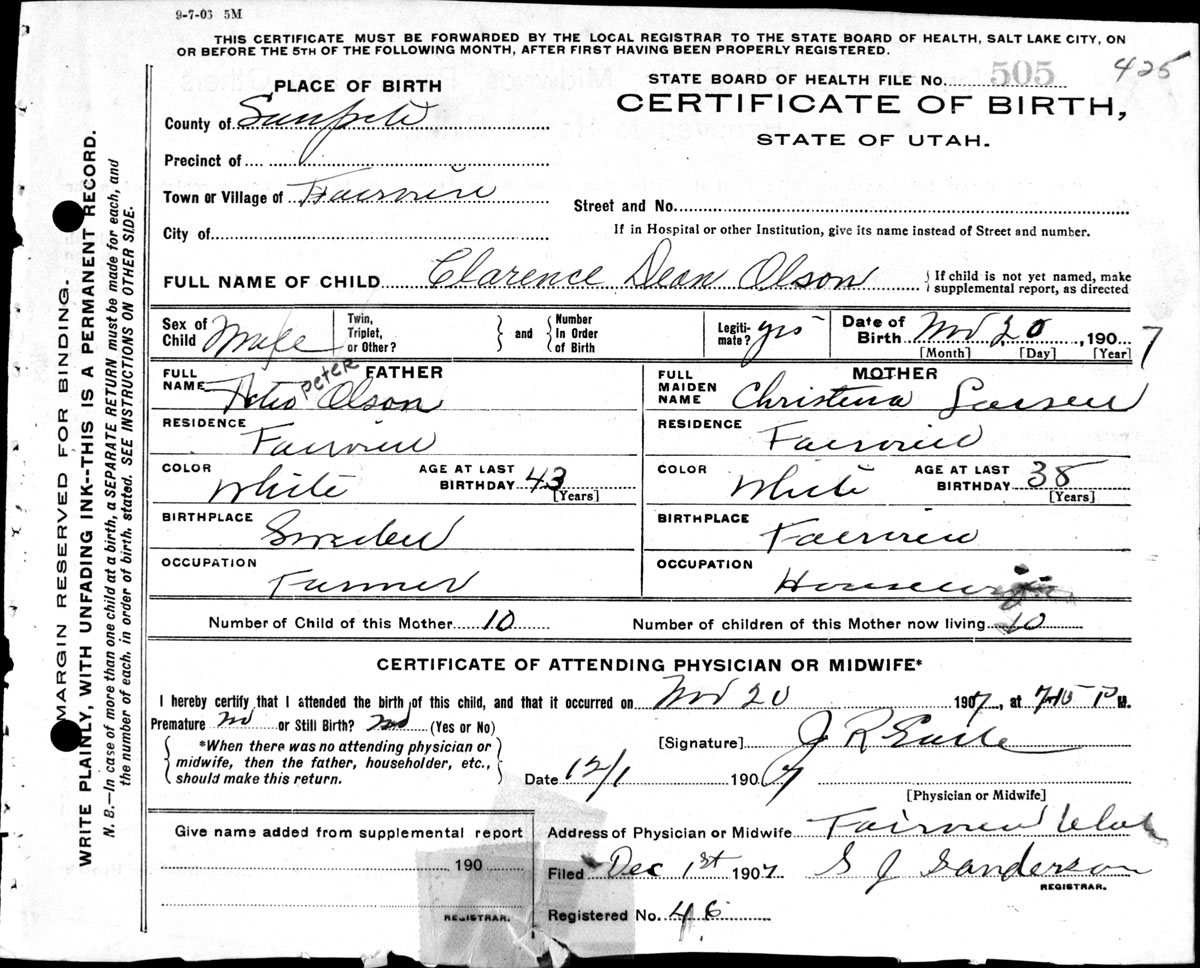 9-7-03 5M
THIS CERTIFICATE MUST BE FORWARDED BY THE LOCAL REGISTRAR TO THE STATE BOARD OF HEALTH, SALT LAKE CITY, ON
OR BEFORE THE 5TH OF THE FOLLOWING MONTH, AFTER FIRST HAVING BEEN PROPERLY REGISTERED.
STATE BOARD OF HEALTH FILE No. 505 425
CERTIFICATE OF BIRTH,
STATE OF UTAH.
PLACE OF BIRTH
County of Sanpete
Precinct of
Town or Village of Fairview
Street and No.
City of
If in Hospital or other Institution, give its name instead of Street and number.
FULL NAME OF CHILD Clarence Dean Olson
{ If child is not yet named, make
supplemental report, as directed
Sex of Child Male
Twin, Triplet, or Other? } and { Number In Order of Birth
Legiti-mate? yes
Date of Birth Nov 20, 1907
[Month] [Day] [Year]
FATHER
FULL NAME Peter Olson
RESIDENCE Fairview
COLOR White AGE AT LAST BIRTHDAY 43 [Years]
BIRTHPLACE Sweden
OCCUPATION Farmer
MOTHER
FULL MAIDEN NAME Christena Larsen
RESIDENCE Fairview
COLOR White AGE AT LAST BIRTHDAY 38 [Years]
BIRTHPLACE Fairview
OCCUPATION Housewife
Number of Child of this Mother 10 Number of children of this Mother now living 10
CERTIFICATE OF ATTENDING PHYSICIAN OR MIDWIFE*
I hereby certify that I attended the birth of this child, and that it occurred on Nov 20 1907, at P M.
Premature no or Still Birth? no (Yes or No)
{ *When there was no attending physician or
midwife, then the father, householder, etc.,
should make this return. }
[Signature] J R
Date 12/1 1907
[Physician or Midwife]
Give name added from supplemental report
190
REGISTRAR.
Address of Physician or Midwife Fairview Utah
Filed Dec 1st 1907. S J Sanderson
REGISTRAR.
Registered No. 46
MARGIN RESERVED FOR BINDING.
WRITE PLAINLY, WITH UNFADING INK--THIS IS A PERMANENT RECORD.
N. B.—In case of more than one child at a birth, a SEPARATE RETURN must be made for each, and
the number of each, in order of birth, stated. SEE INSTRUCTIONS ON OTHER SIDE.